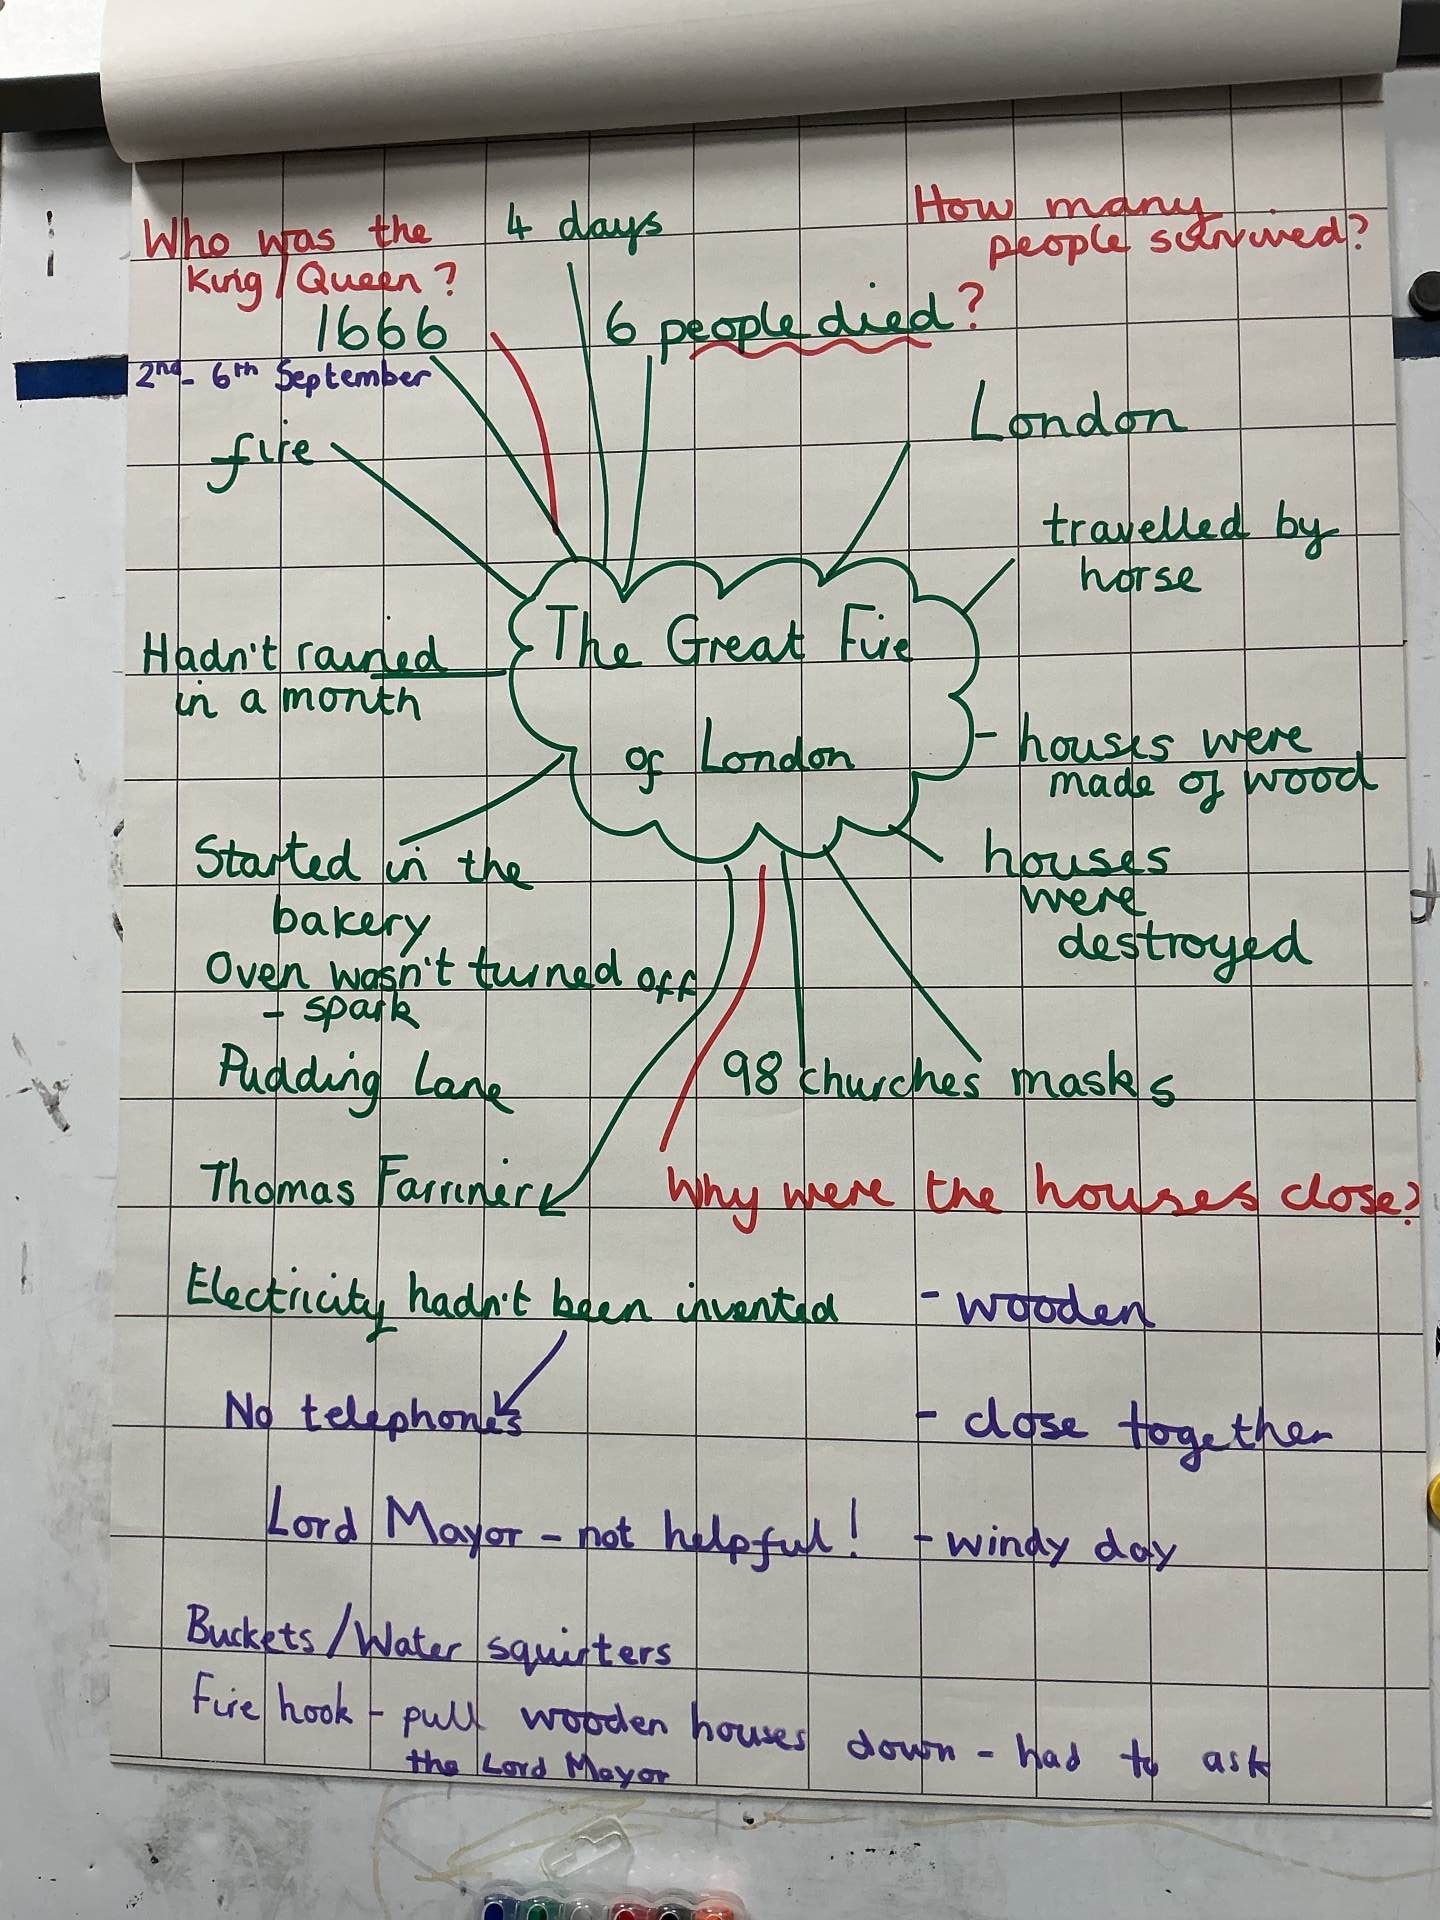 Who was the
King/Queen?
4 days
How many
people survived?
1666
2nd - 6th September
6 people died?
fire
London
travelled by
horse
The Great Fire
of London
Hadn't rained
in a month
- houses were
made of wood
houses
were
destroyed
Started in the
bakery
Oven wasn't turned off
- spark
Pudding Lane
98 churches
masks
Thomas Farriner
Why were the houses close?
Electricity hadn't been invented
- wooden
No telephones
- close together
Lord Mayor - not helpful!
- windy day
Buckets/Water squirters
Fire hook - pull wooden houses down - had to ask
the Lord Mayor